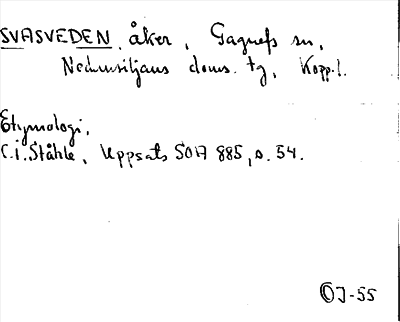 SVASVEDEN, åker, Gagnefs sn,
Nedansiljans doms. tg, Kopp. l.
Etymologi,
C. I. Ståhle, Uppsats SOA 885, s. 54.
OJ-55